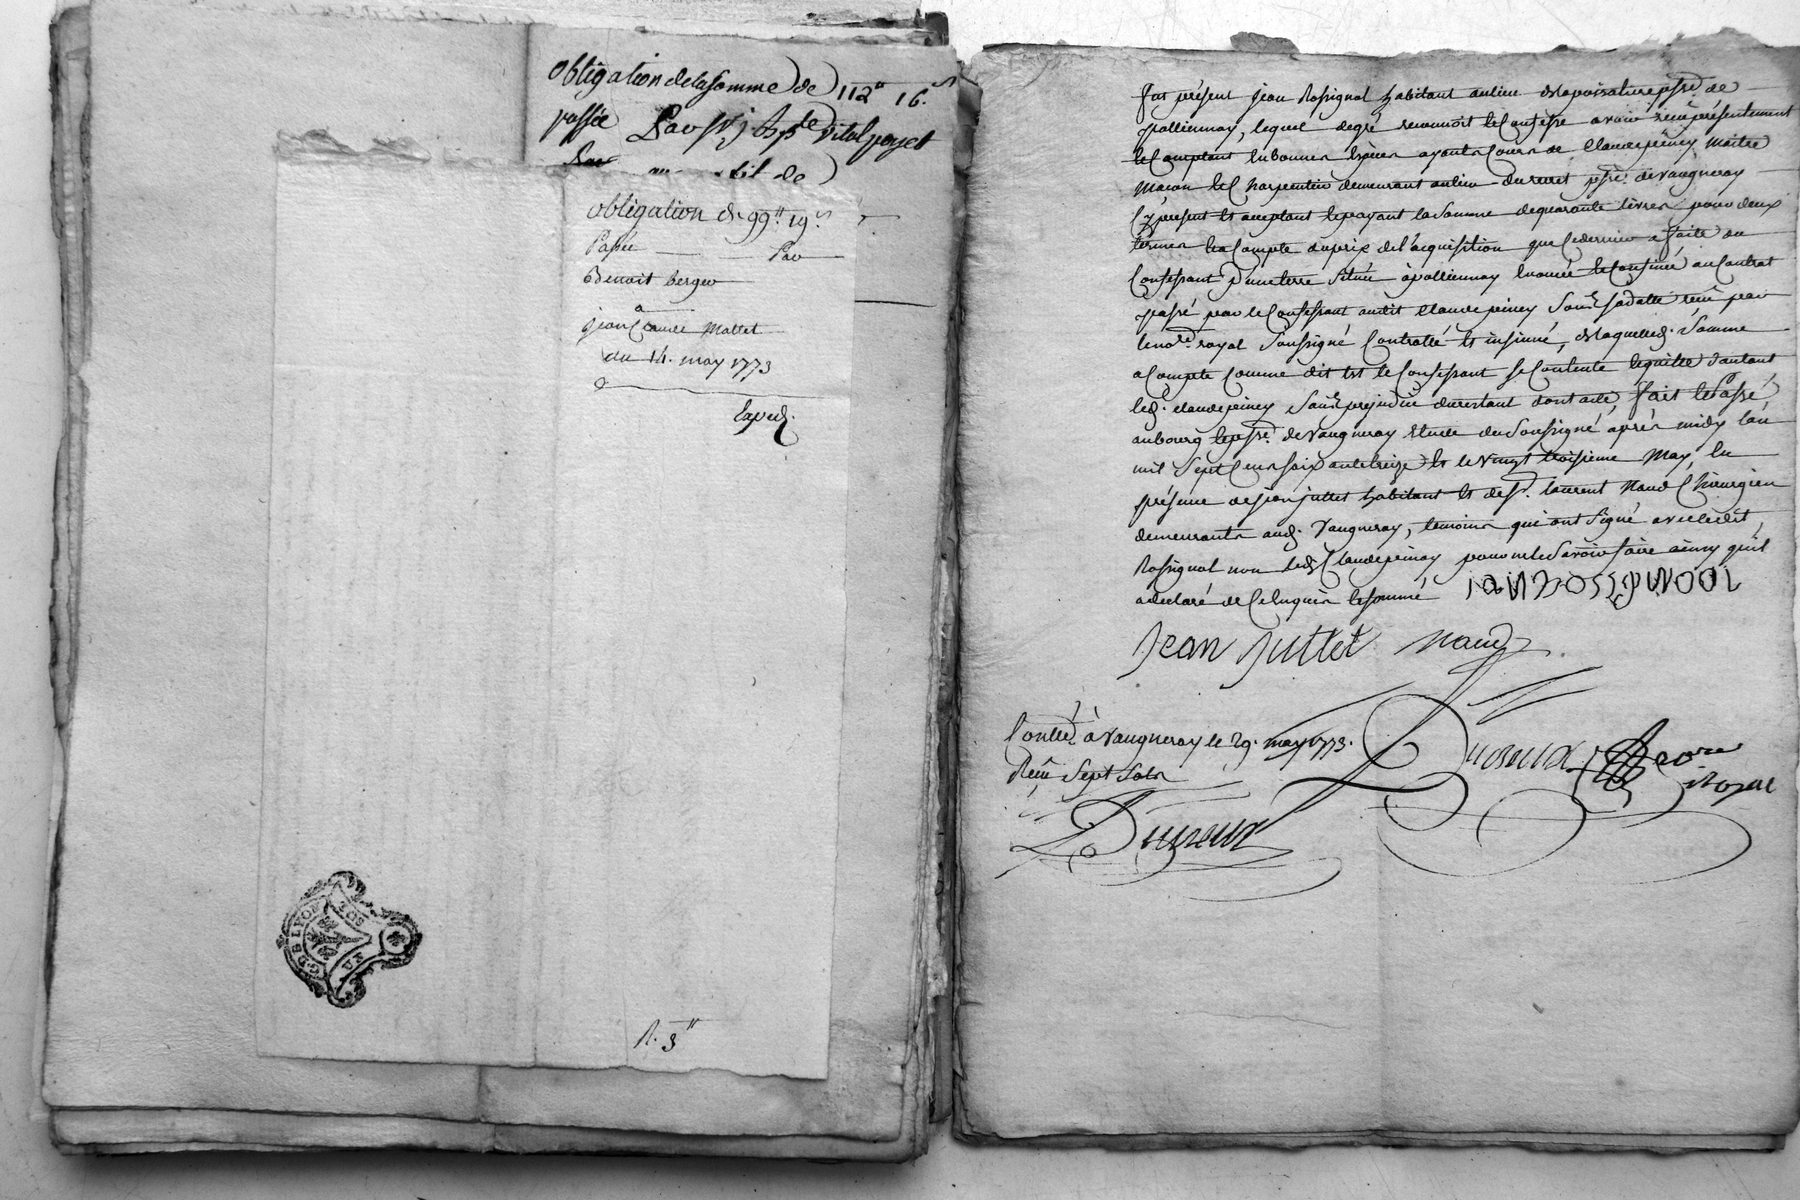 obligation de la somme de 112ᴴ 16.ˢ
passée par Sʳ j. bpᵗᵉ vital poyet
par
au profit de
obligation de 99ᴴ 19ˢ
Passée par
Benoit berger
a
jean Claude Mallet
du 14. may 1773
Exped.
G. DE LYON
UN SOL
R. 3ᴴ
fut présent jean Rossignol habitant au lieu de la poizatiere psse. de
pollionnay, lequel degré reconnoit et Confesse avoir reçu présentement
et Comptant en bonnes Especes ayants Cours de Claude peiney Maitre
Maçon et Charpentier demeurant au lieu psse. de Vaugneray
Cy present et acceptant et payant la Somme de quarante livres pour deux
termes et a Compte du prix de l'acquisition que Ce dernier a faite du
Confessant D'une terre Située à pollionnay enoncée et Confinée au Contrat
passé par le Confessant audit Claude peiney Sous Sa datte reçu par
le nore. royal Soussigné Controllé et insinué, de laquelle d. Somme
a Compte Comme dit est le Confessant Se Contente et quitte d'autant
led. Claude peiney Sans prejudice du restant dont acte, fait et Passé,
au bourg et psse. de Vaugneray Etude du Soussigné après midy l'an
mil Sept Cens Soixante treize et le Vingt troisieme May, En
présence de jean juttet habitant et de Sr. laurent Naud Chirurgien
demeurants aud. Vaugneray, temoins qui ont Signé avec ledit,
Rossignol non led. Claude peiney pour ne le Savoir faire ainsy qu'il
a declaré de Ce Enquis et sommé
Jean juttet Naud
Contlé. à Vaugneray le 29. may 1773.
Reçu Sept Sols
nore
Royal